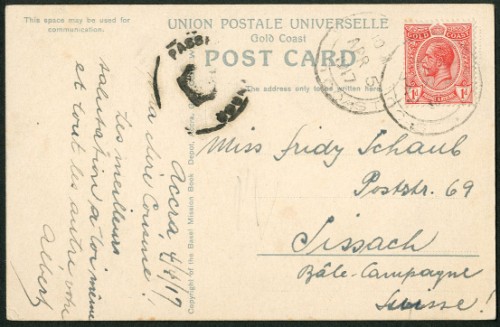 This space may be used for
communication.
UNION POSTALE UNIVERSELLE
Gold Coast
POST CARD
The address only to be written
GOLD COAST
1d 1d
AP 5
17
PASS
Accra, 4/4/17
Ma chère Cousine!
Les meilleurs
salutation a toi même
et tout les autre, votre
Albert
Copyright of the Basel Mission Book Depot,
Miss Fridy Schaub
Poststr. 69
Sissach
Bâle-Campagne
Suisse!